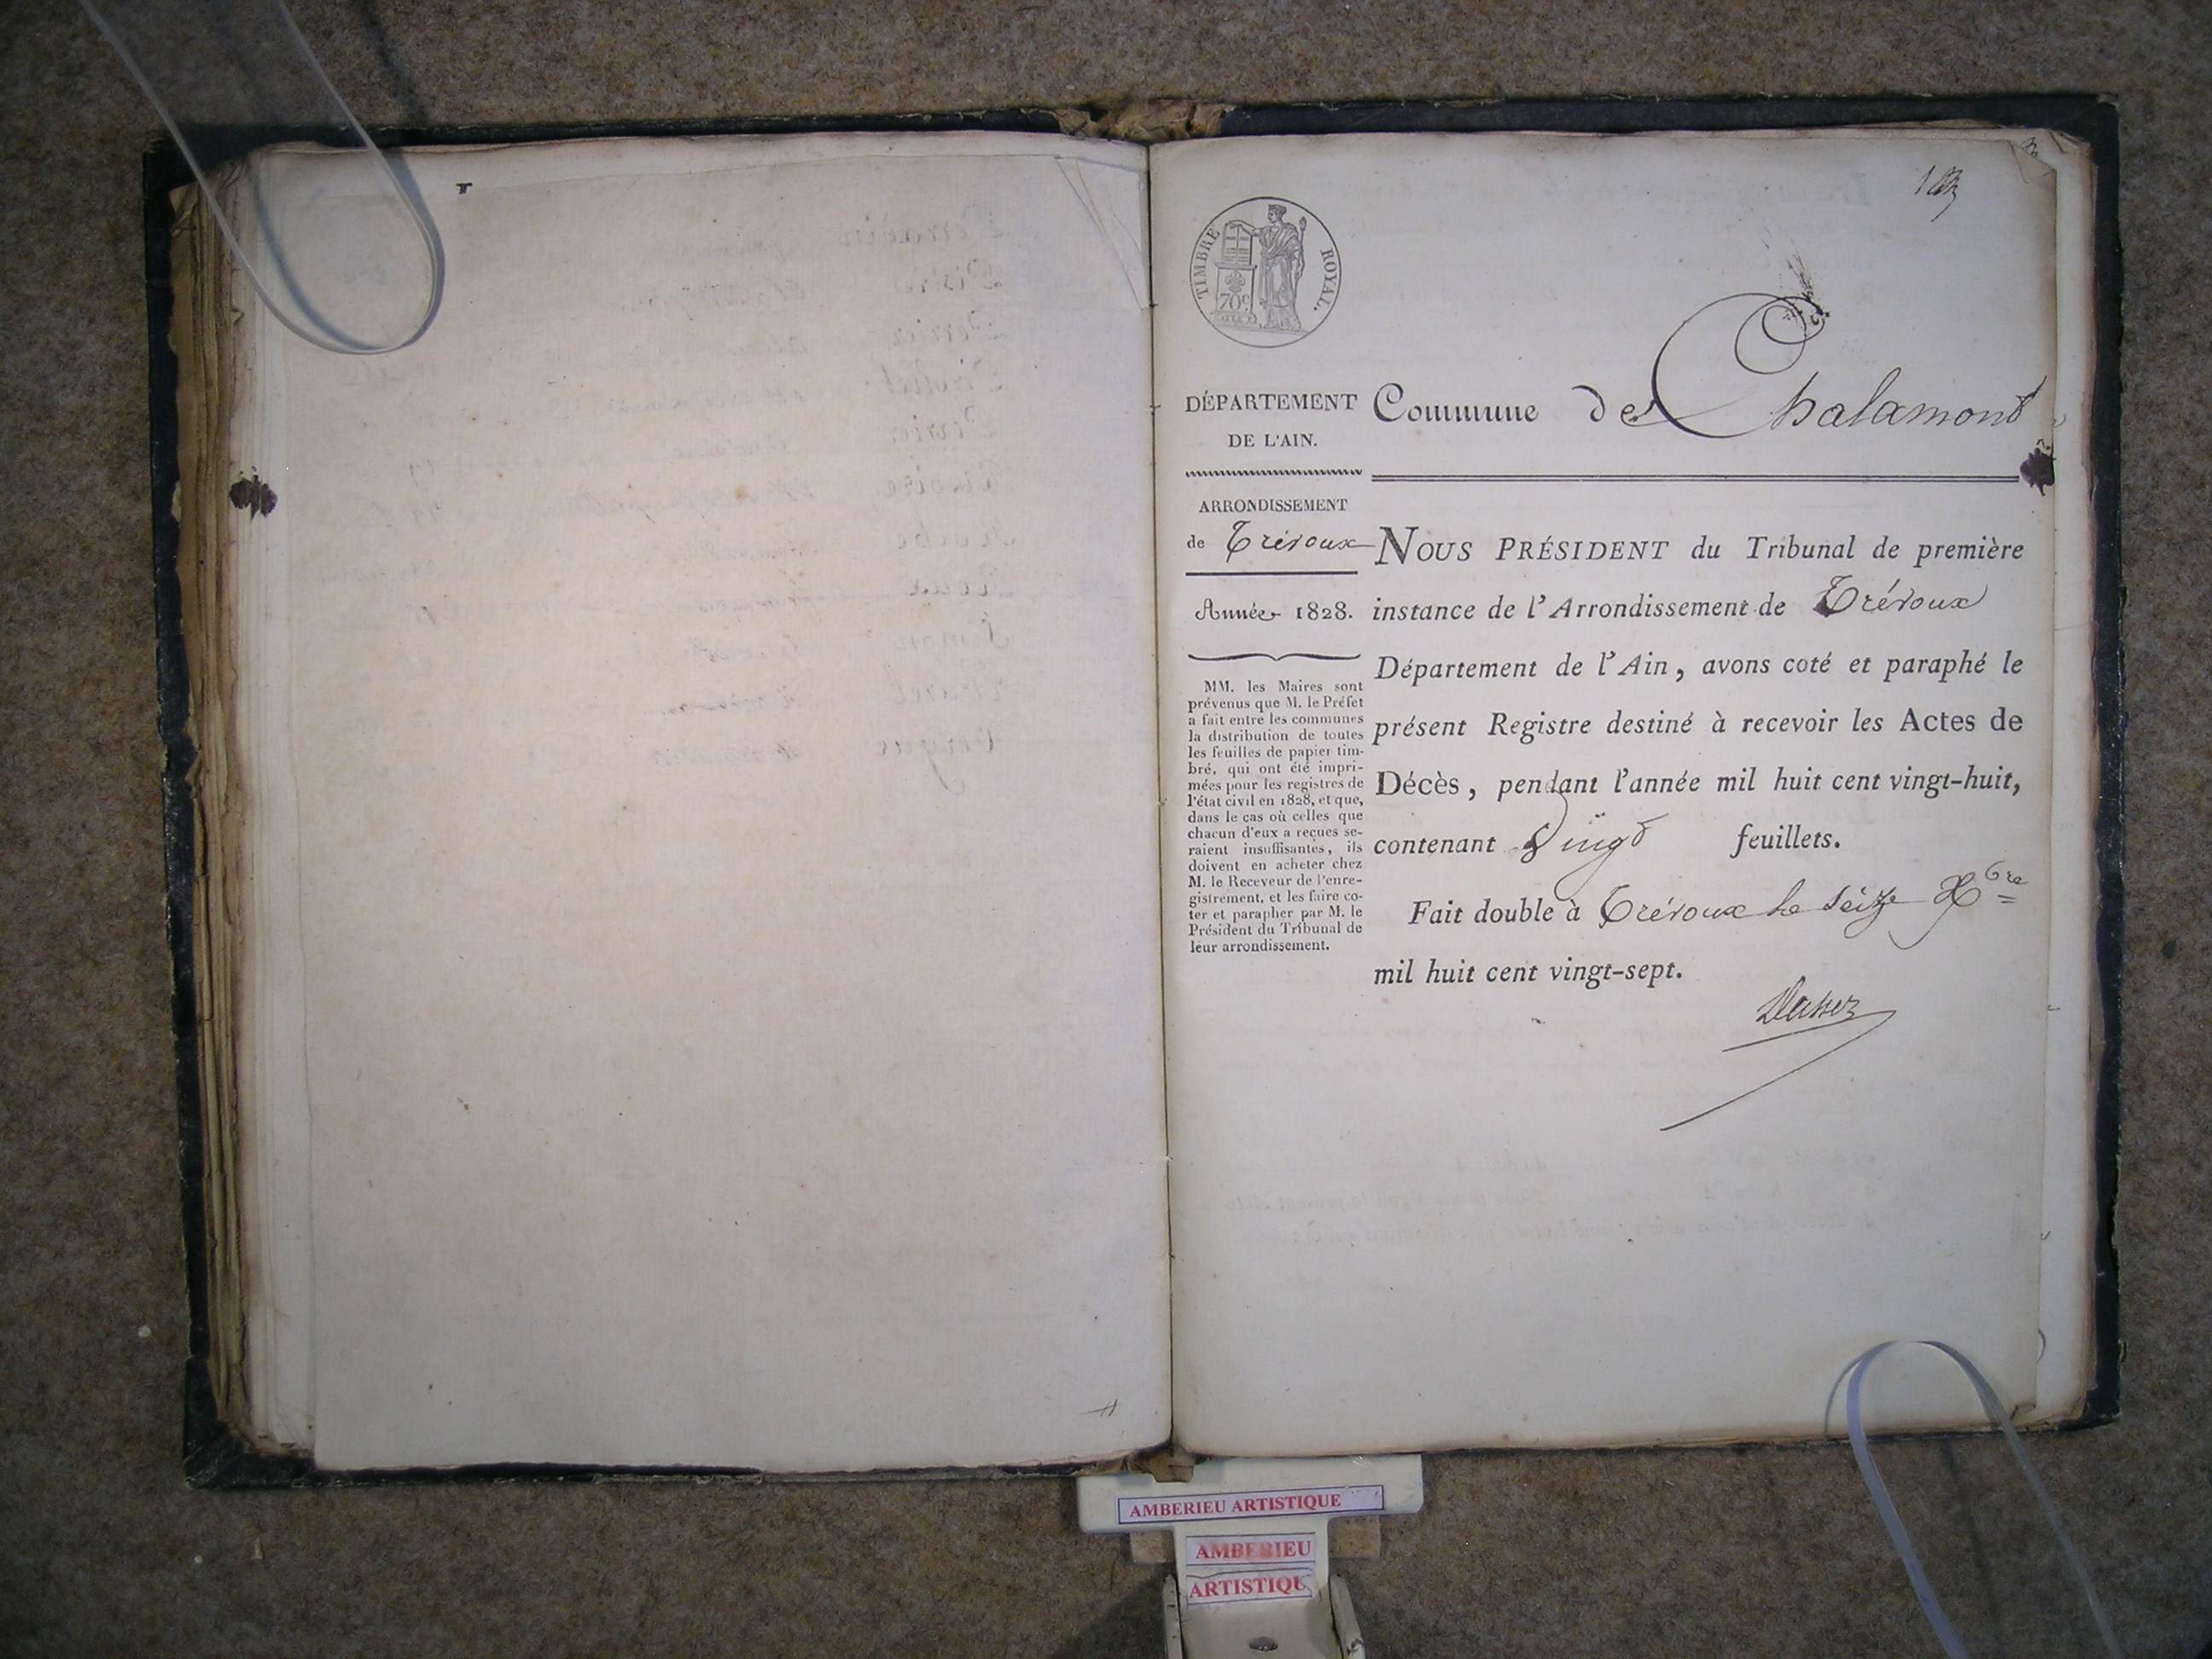 TIMBRE ROYAL.
70c
DÉPARTEMENT
DE L'AIN.
Commune de Chalamont
ARRONDISSEMENT
de Trévoux
Année 1828.
MM. les Maires sont
prévenus que M. le Préfet
a fait entre les communes
la distribution de toutes
les feuilles de papier tim-
bré, qui ont été impri-
mées pour les registres de
l'état civil en 1828, et que,
dans le cas où celles que
chacun d'eux a reçues se-
raient insuffisantes, ils
doivent en acheter chez
M. le Receveur de l'enre-
gistrement, et les faire co-
ter et parapher par M. le
Président du Tribunal de
leur arrondissement.
NOUS PRÉSIDENT du Tribunal de première
instance de l'Arrondissement de Trévoux
Département de l'Ain, avons coté et paraphé le
présent Registre destiné à recevoir les Actes de
Décès, pendant l'année mil huit cent vingt-huit,
contenant vingt feuillets.
Fait double à Trévoux le seize Xbre
mil huit cent vingt-sept.
AMBERIEU ARTISTIQUE
AMBERIEU
ARTISTIQU